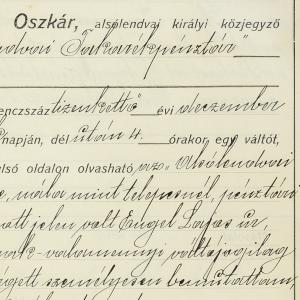 Oszkár, alsólendvai királyi közjegyző
Takarékpénztár"
enczszáz tizenkettő évi deczember
napján, dél után 4. órakor egy váltót,
lsó oldalon olvasható " Alsólendvai
mint telepesnél, pénztári
att jelen volt Engel Lajos úr
váltójogilag
égett személyesen bemutattam,